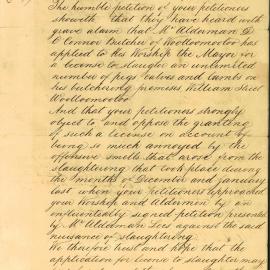 The humble petition of your petitioners
showeth that they have heard with
grave alarm that Mr Alderman D
O'Connor Butcher of Woolloomooloo has
applied to His Worship the Mayor for
a license to slaughter an unlimited
number of pigs calves and lambs on
his butchering premises William Street
Woolloomooloo
And that your petitioners strongly
object to and oppose the granting
of such a license on account of
being so much annoyed by the
offensive smells that arose from the
slaughtering that took place during
the months of December and January
last when your petitioners approached
your Worship and Aldermen by an
influentially signed petition presented
by Mr Alderman Lees against the said
nuisance of slaughtering
We therefore trust and hope that the
application for license to slaughter may